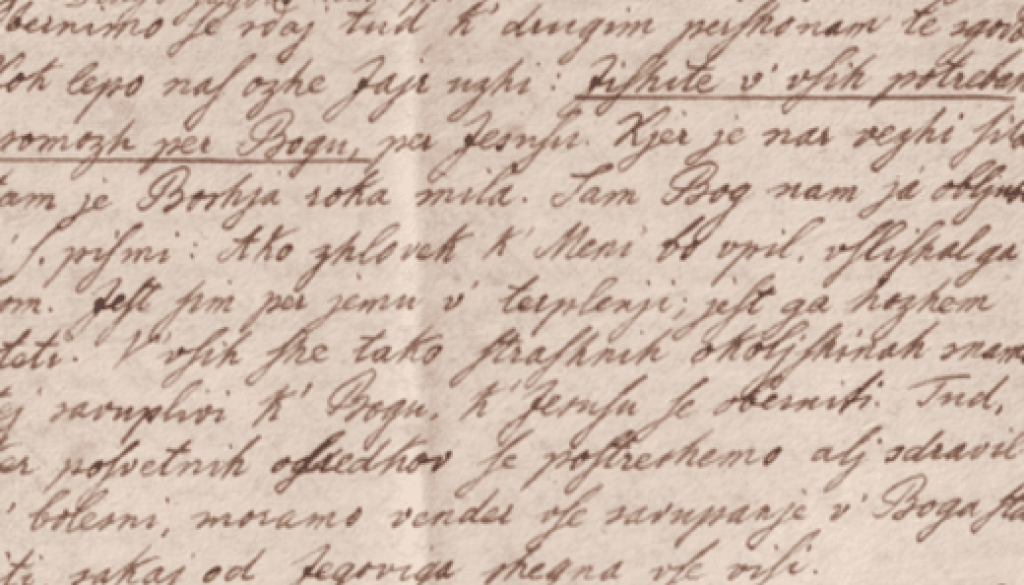 bernimo ſe sdaj tud k' drugim perſhonam te sgod
lepo naſ ozhe Jajr uzhi: Jiſhite v' vſih potrebah
pomozh per Bogu, per Jesuſu. Kjer je nar vezhi ſila
tam je Boshja roka mila. Sam Bog nam ja obljubi
ſ. piſmi: Ako zhlovek k' Meni bo vpil, vſliſhal ga
bom. Jeſt ſim per jemu v' terplenji; jeſt ga hozhem
teti. V' vſih ſhe tako ſtraſhnih okoljſhinah snamo
savuplivi k' Bogu, k' Jesuſu ſe oberniti. Tud,
poſvetnih ſe poſtreshemo alj sdravil
v' bolesni, moramo vender vſe savupanje v' Boga
ti, sakaj od Jegoviga shegna vſe viſi.